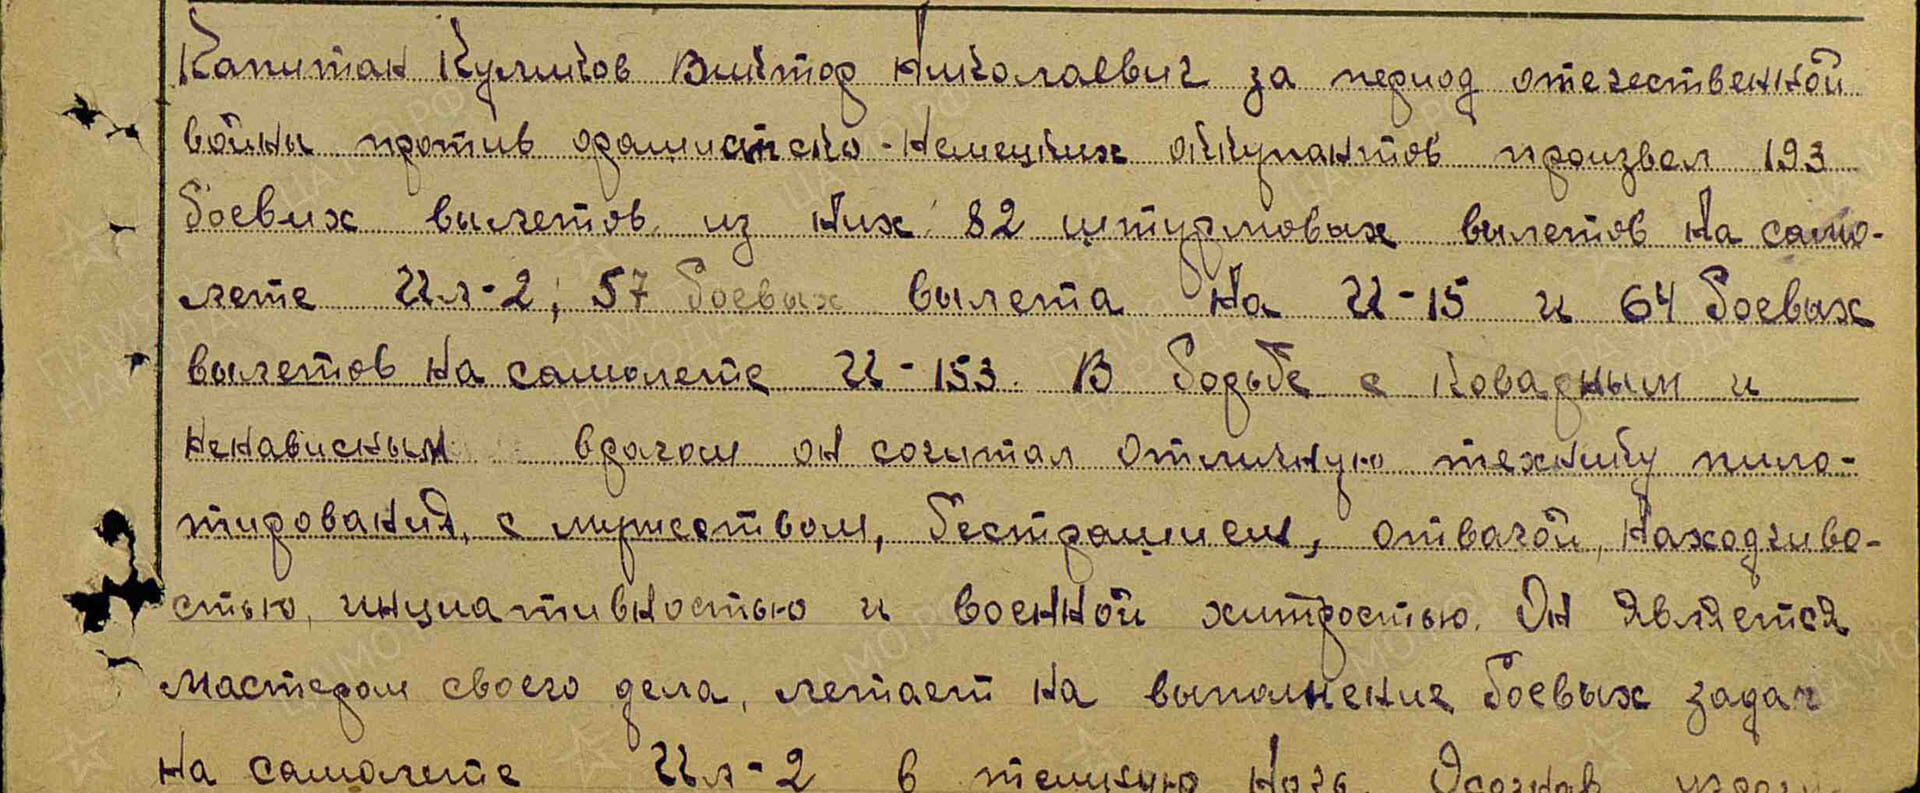 Капитан Куликов Виктор Николаевич за период отечественной
войны против фашистско-немецких оккупантов произвел 193
боевых вылетов из них 82 штурмовых вылетов на само-
лете Ил-2; 57 боевых вылета на И-15 и 64 боевых
вылетов на самолете И-153. В борьбе с коварным и
ненависным врагом он сочитал отличную технику пило-
тирования, с мужеством, бестрашием, отвагой, находчиво-
стью, инциативностью и военной хитростью. Он является
мастером своего дела, летает на выполнение боевых задач
на самолете Ил-2 в темную ночь.